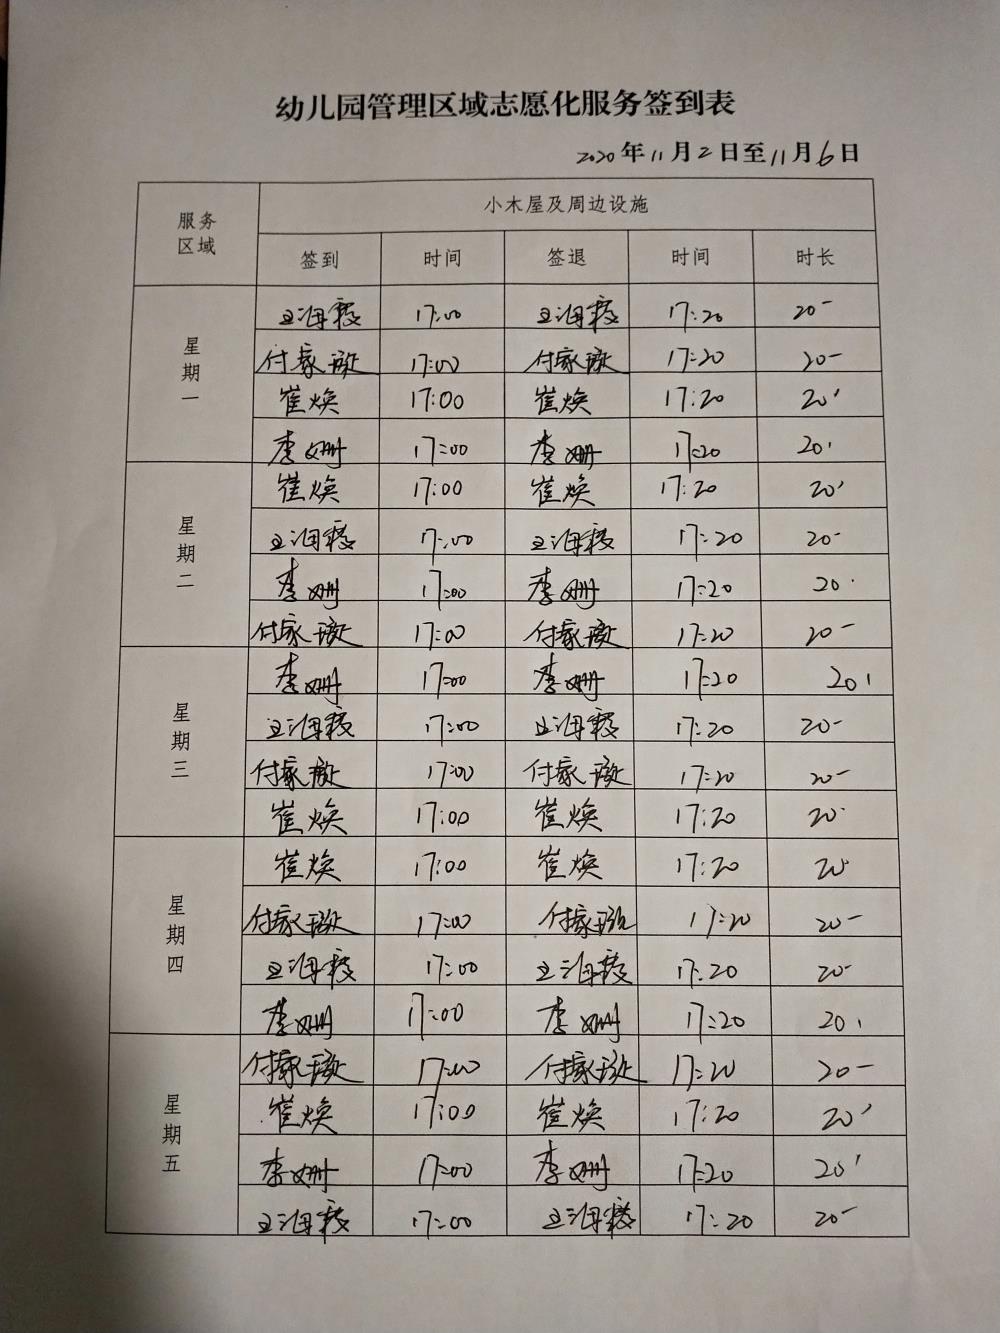 幼儿园管理区域志愿化服务签到表
2020年11月2日至11月6日
服务区域 小木屋及周边设施
签到 时间 签退 时间 时长
星期一
王海霞 17:00 王海霞 17:20 20'
付家 17:00 付家 17:20 20'
崔焕 17:00 崔焕 17:20 20'
李姗 17:00 李姗 17:20 20'
星期二
崔焕 17:00 崔焕 17:20 20'
王海霞 17:00 王海霞 17:20 20'
李姗 17:00 李姗 17:20 20'
付家 17:00 付家 17:20 20'
星期三
李姗 17:00 李姗 17:20 20'
王海霞 17:00 王海霞 17:20 20'
付家 17:00 付家 17:20 20'
崔焕 17:00 崔焕 17:20 20'
星期四
崔焕 17:00 崔焕 17:20 20'
付家 17:00 付家 17:20 20'
王海霞 17:00 王海霞 17:20 20'
李姗 17:00 李姗 17:20 20'
星期五
付家 17:00 付家 17:20 20'
崔焕 17:00 崔焕 17:20 20'
李姗 17:00 李姗 17:20 20'
王海霞 17:00 王海霞 17:20 20'